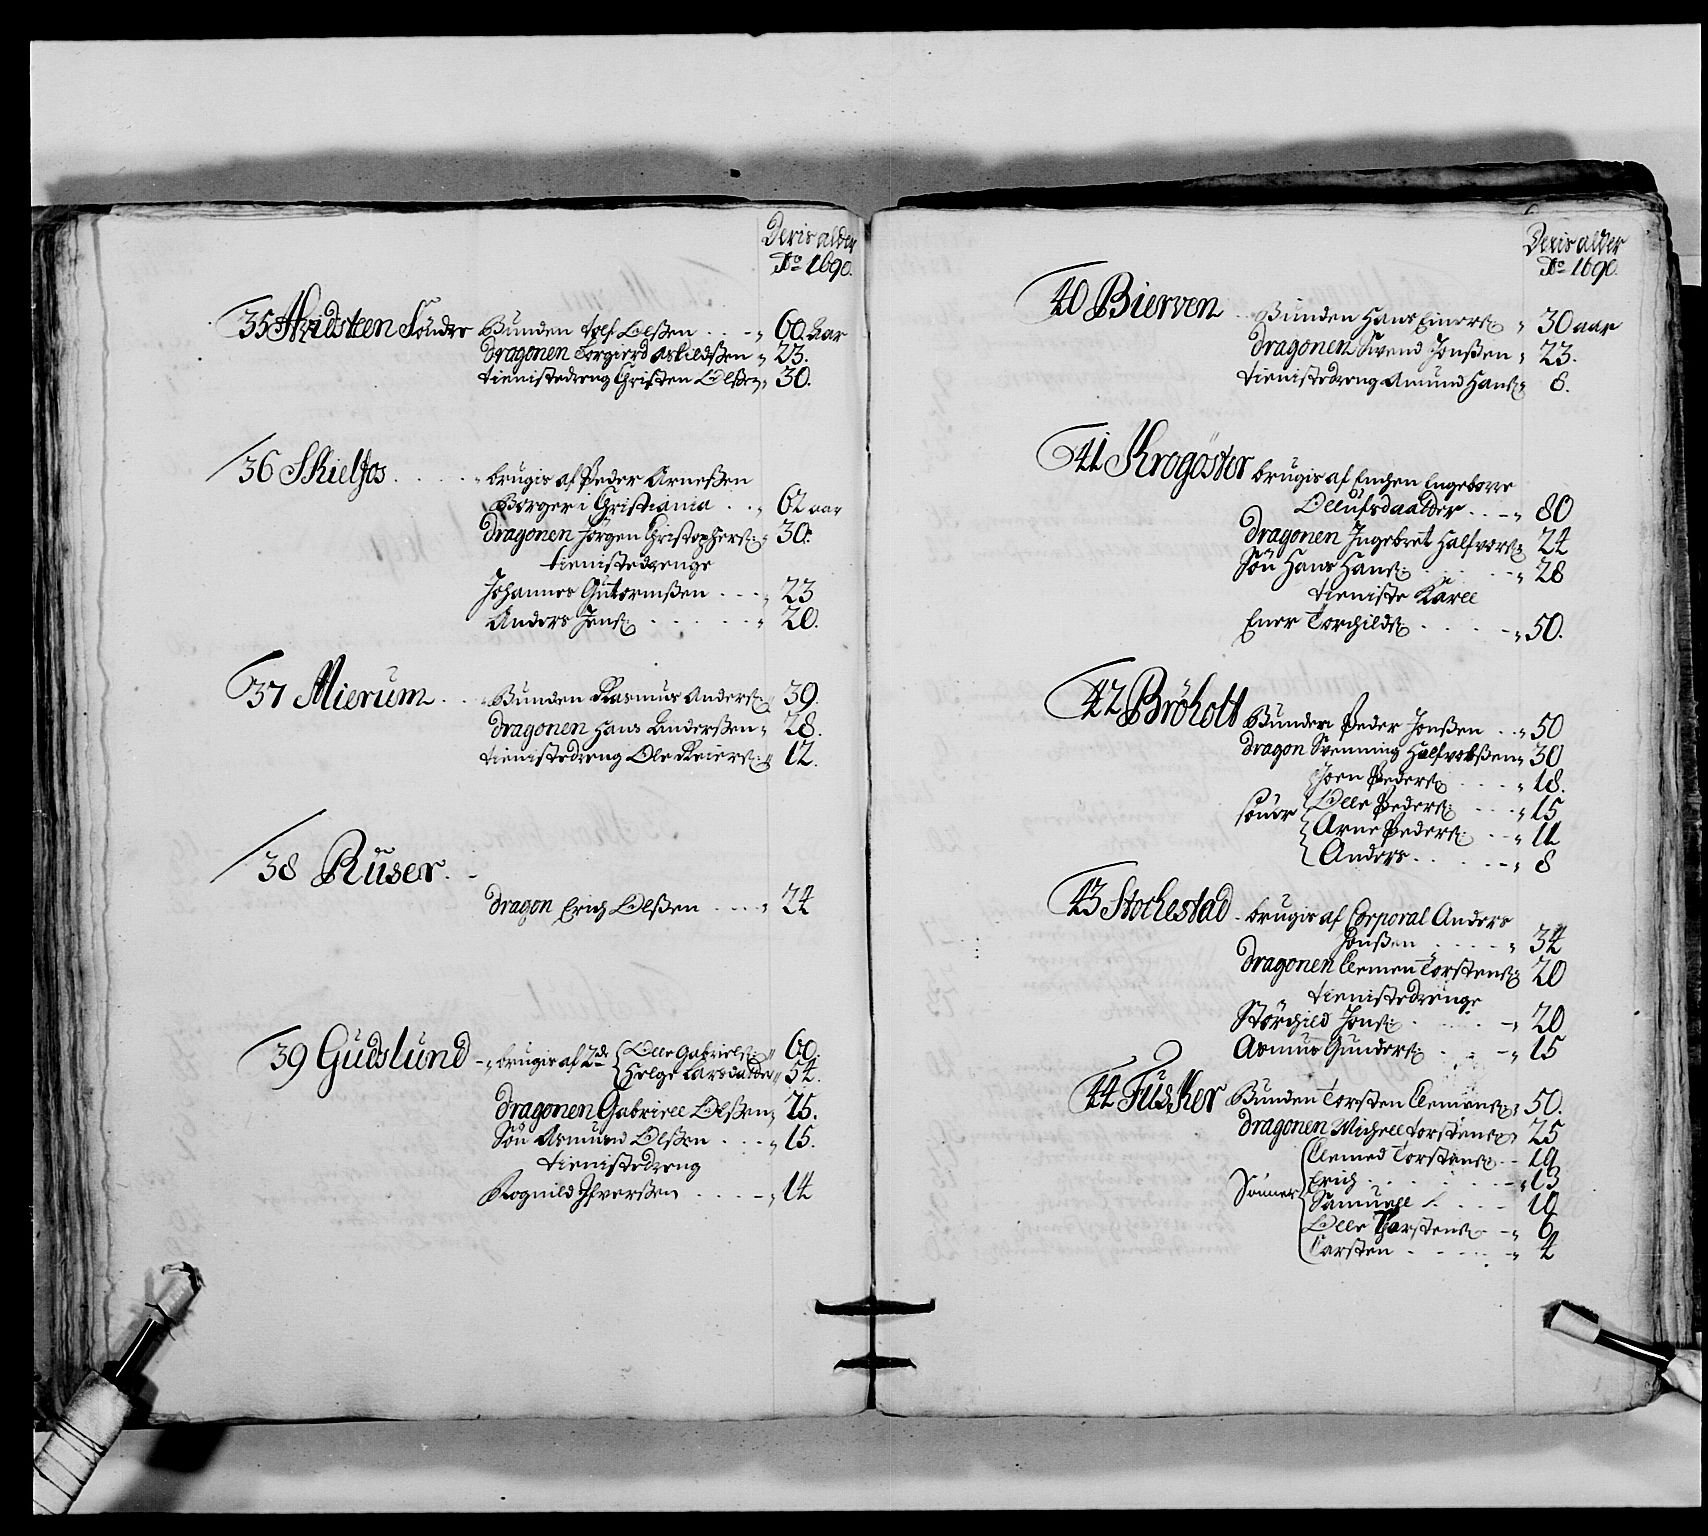 Deris alder
Ao 1690.
35 Hvidsteen Söndre Bunden Tolf Olßen . . - „ 60. Aar
Dragonen Torgierd Askildßen „ 23.
tienistedreng Christen Olßen „ 30.
36 Skielfos . . . . . „ brugis af Peder Arneßen
Borger i Christiania . . „ 62 aar
Dragonen Jörgen Christophers: „ 30.
tienistedrenge
Johannes Gutormßen . . . „ 23
Anders Jens: . . . . . „ 20.
37 Mierum . . „ Bunden Rasmus Anders: „ 39.
Dragonen Hans Anderßen „ 28.
tienistedreng Ole Reiers: „ 12.
38 Ruser . -
Dragon Erich Olßen . . . . „ 24
39 Gudslund - „ brugis af 2de { Olle Gabriels: „ 60.
Helge Larsdatter „ 54.
Dragonen Gabriell Olßen „ 25.
Sön Asmund Olßen . . . „ 15.
tienistedreng
Rognild Ifverßen . . . . - „ 14
Deris alder
Ao 1690.
40 Bierven . . Bunden Hans Einers: „ 30 aar
Dragonen Svend Jonßen „ 23.
tienistedreng Amund Hans: „ 8.
41 Krogöster brugis af Enchen Ingeborre
Ollufsdaatter . . - „ 80
Dragonen Ingebret Halfvors: „ 24
Sön Hans Hans: . . . . - „ 28
tieniste Karll
Ener Torchilds: . . . . - „ 50.
42 Bröholt Bunden Peder Jonßen . . „ 50
Dragon Svenning Halfvorßen „ 30
Joen Peders: . . . . „ 18.
sönner { Olle Peders: . . . „ 15
Arne Peders: . . - „ 11
Anders . . . . . - „ 8
43 Stochestad - brugis af Corporal Anders
Jonßen . . . . . „ 34
Dragonen Clemen Torstens: 20
tienistedrenge
Storchild Jons: . . . . - „ 20
Asmus Gunders: . . . - „ 15
44 Fusker Bunden Torsten Clemens: „ 50.
Dragonen Michell Torstens: „ 25
Clemed Torstens: . - 19
Sönner { Erich . . . . . . . - „ 13
Samuell . . . . . - 10
Olle Torstens: - „ 6
Carsten . . . . . . - „ 4